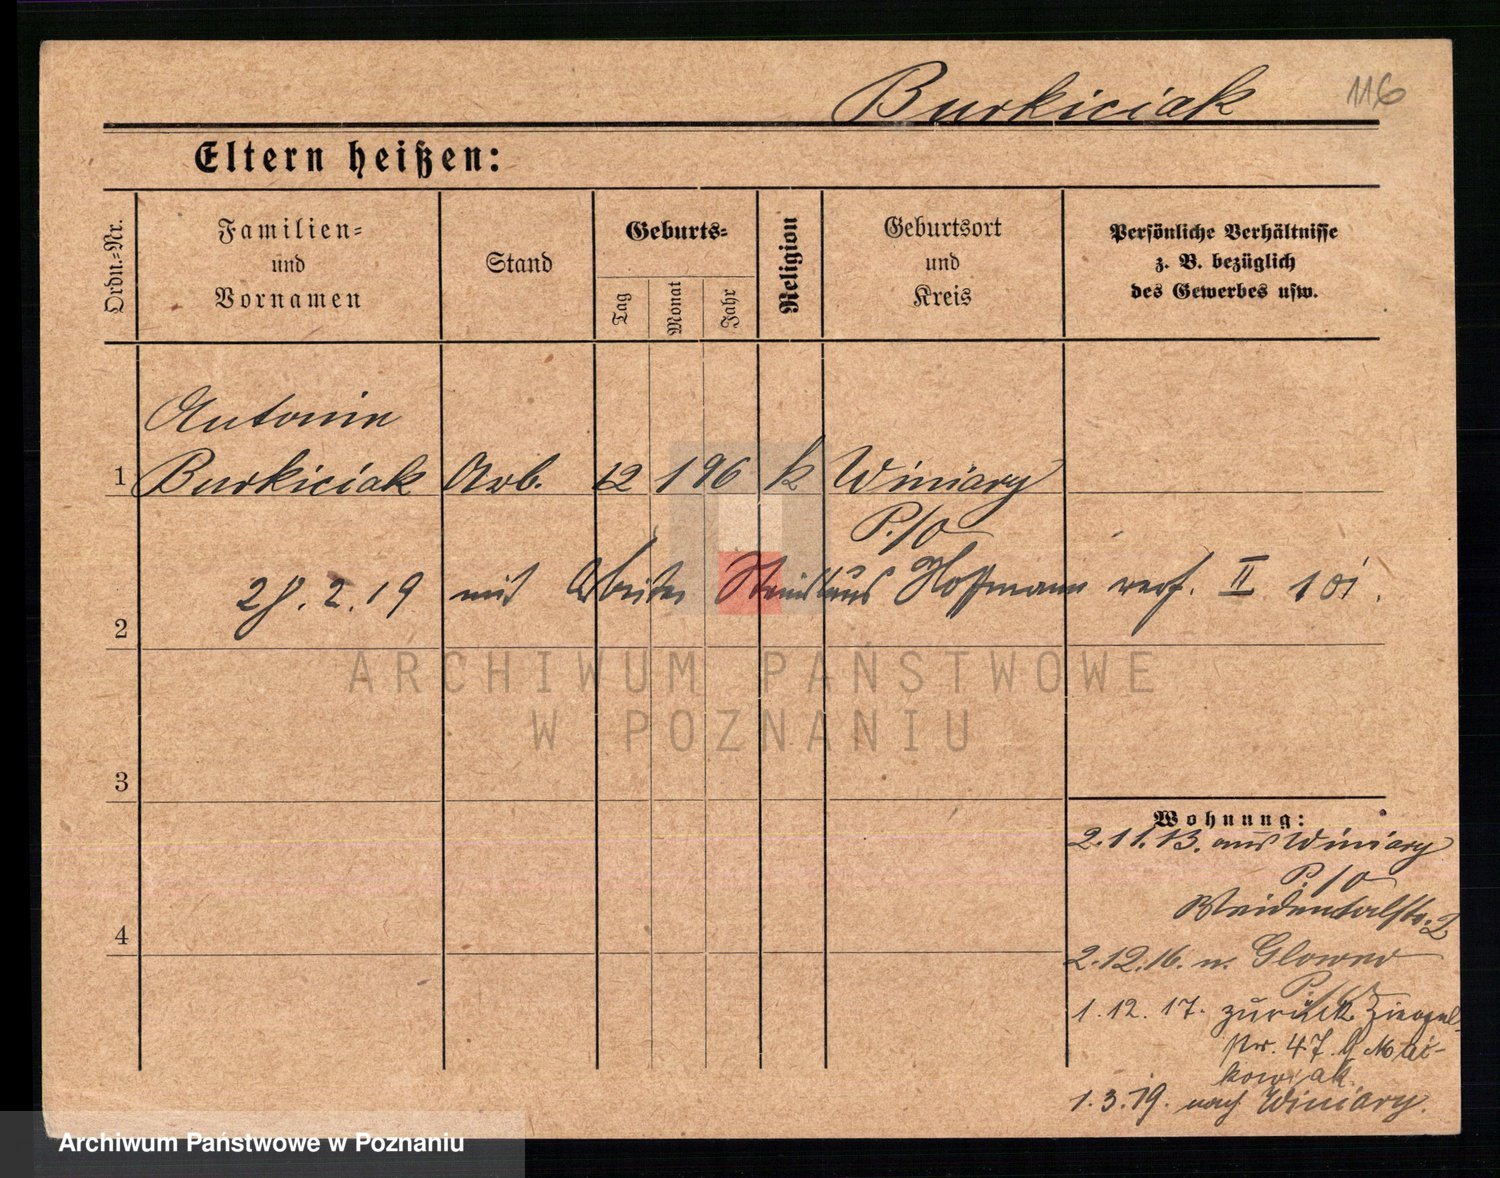 Burkiciak 116
Eltern heißen:
Ordn.-Nr.
Familien-
und
Vornamen
Stand
Geburts-
Tag
Monat
Jahr
Religion
Geburtsort
und
Kreis
Persönliche Verhältnisse
z. B. bezüglich
des Gewerbes usw.
Antonin
1 Burkiciak Arb. 12 1 96 k Winiary
P./O
28.2.19 mit Arbeiter Stanislaus Hoffmann verh. II 101.
2
ARCHIWUM PAŃSTWOWE
W POZNANIU
3
4
Wohnung:
2.11.13. aus Winiary
P./O
Weidentalstr. 2
2.12.16. n. Glowno
P./O
1.12.17. zurück Ziegel-
str. 47. b Mać-
kowiak.
1.3.19. nach Winiary.
Archiwum Państwowe w Poznaniu